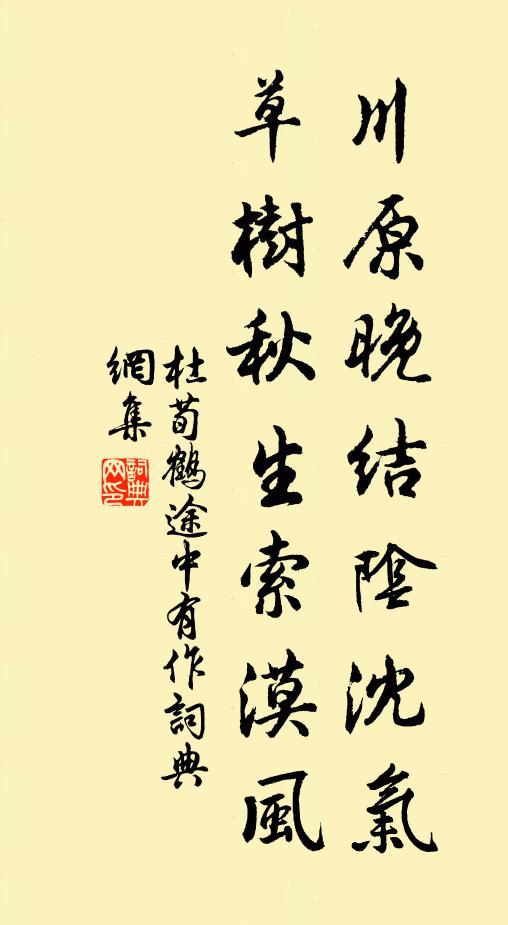 川原晚結陰沈氣
草樹秋生索漠風
杜荀鶴途中有作詞典
網集
詞典網印